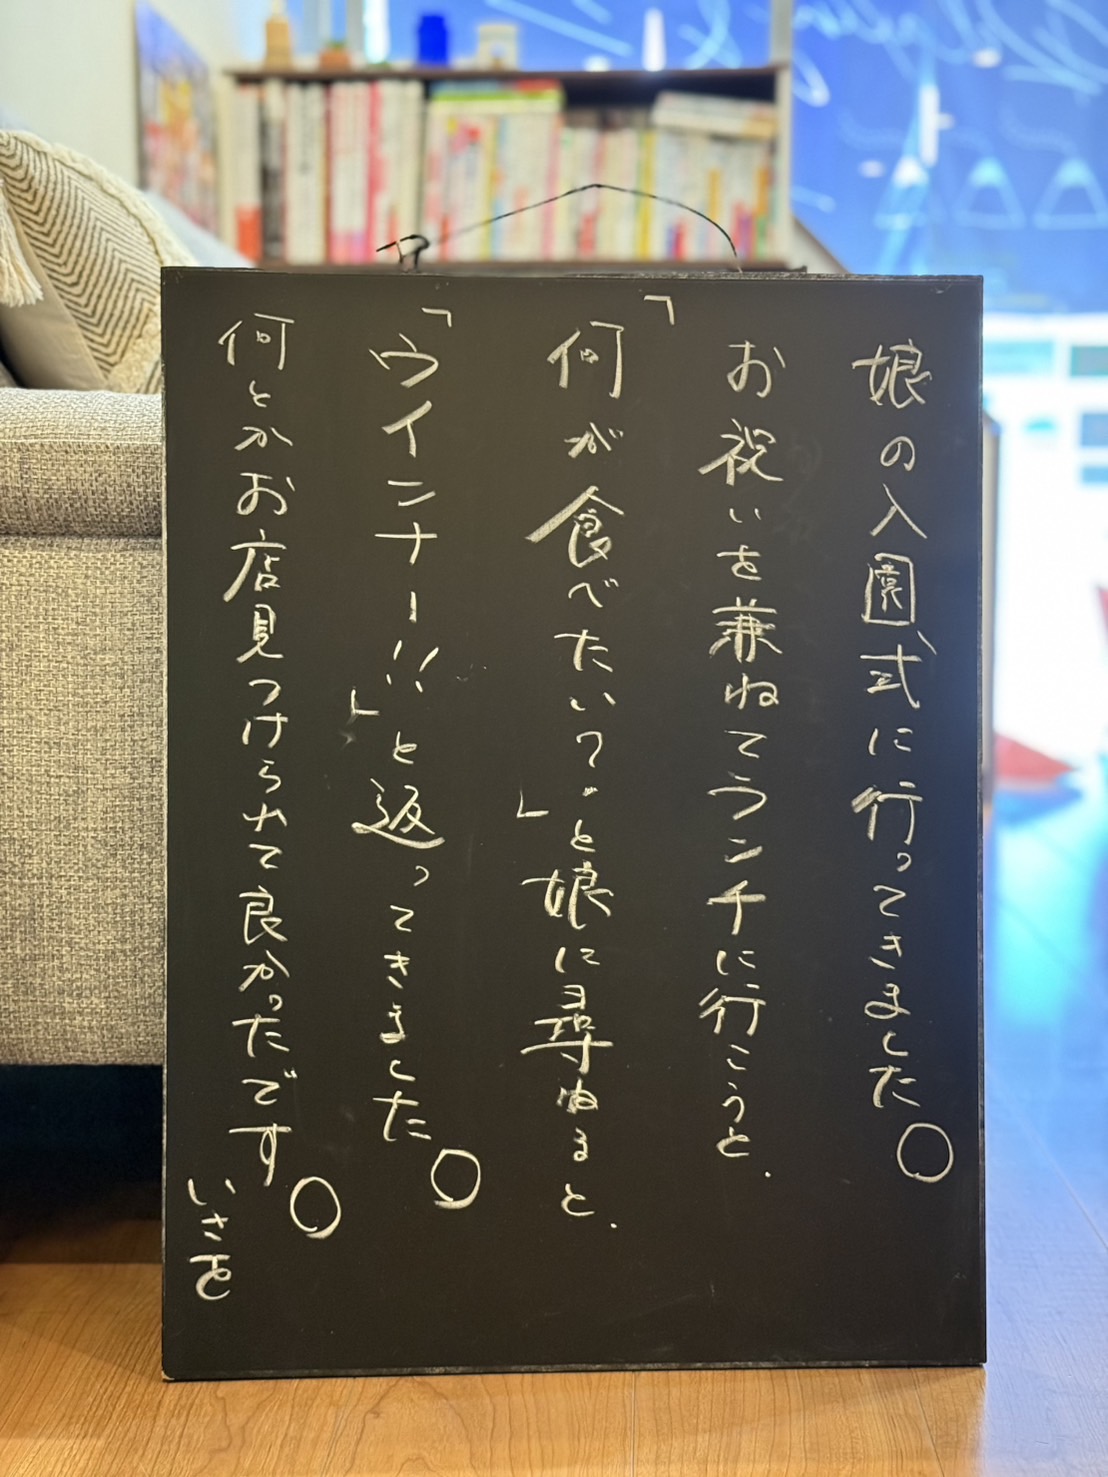 娘の入園式に行ってきました。
お祝いを兼ねてランチに行こうと、
「何が食べたい？」と娘に尋ねると、
「ウインナー!!」と返ってきました。
何とかお店見つけられて良かったです。
いさを